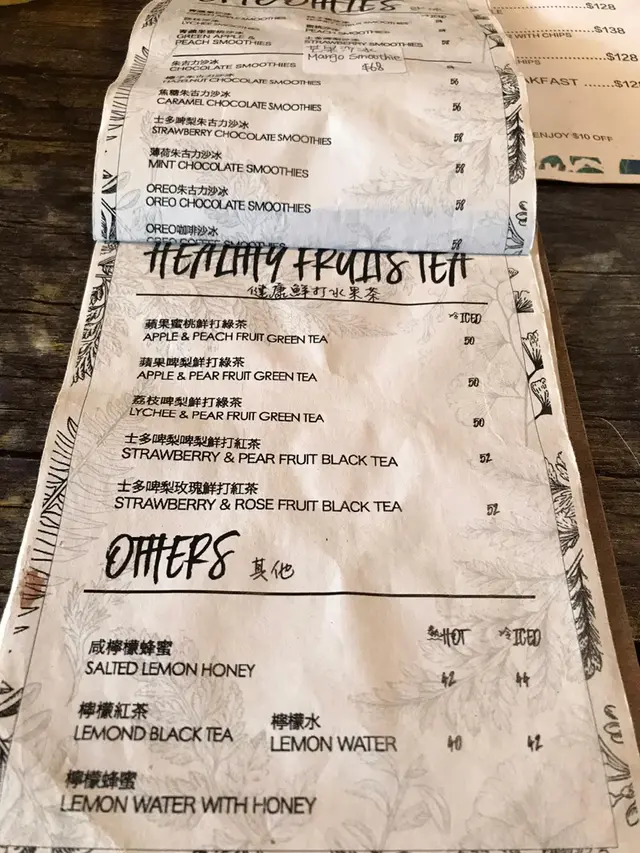 $128
$138
WITH CHIPS
HIPS
AKFAST
ENJOY $10 OFF
PEACH SMOOTHIES
青蘋果蜜桃沙冰
GREEN APPLE &
PEACH SMOOTHIES
58
STRAWBERRY SMOOTHIES
芒果沙冰
Mango Smoothie
$68
朱古力沙冰
CHOCOLATE SMOOTHIES
HAZELNUT CHOCOLATE SMOOTHIES 56
焦糖朱古力沙冰
CARAMEL CHOCOLATE SMOOTHIES 56
士多啤梨朱古力沙冰
STRAWBERRY CHOCOLATE SMOOTHIES 58
薄荷朱古力沙冰
MINT CHOCOLATE SMOOTHIES 58
OREO朱古力沙冰
OREO CHOCOLATE SMOOTHIES 58
OREO咖啡沙冰
OREO COFFEE SMOOTHIES 58
HEALTHY FRUITS TEA
健康鮮打水果茶
冷 ICED
蘋果蜜桃鮮打綠茶
APPLE & PEACH FRUIT GREEN TEA 50
蘋果啤梨鮮打綠茶
APPLE & PEAR FRUIT GREEN TEA 50
荔枝啤梨鮮打綠茶
LYCHEE & PEAR FRUIT GREEN TEA 50
士多啤梨啤梨鮮打紅茶
STRAWBERRY & PEAR FRUIT BLACK TEA 52
士多啤梨玫瑰鮮打紅茶
STRAWBERRY & ROSE FRUIT BLACK TEA 52
OTHERS 其他
熱HOT 冷ICED
咸檸檬蜂蜜
SALTED LEMON HONEY 42 44
檸檬紅茶 檸檬水
LEMOND BLACK TEA LEMON WATER 40 42
檸檬蜂蜜
LEMON WATER WITH HONEY